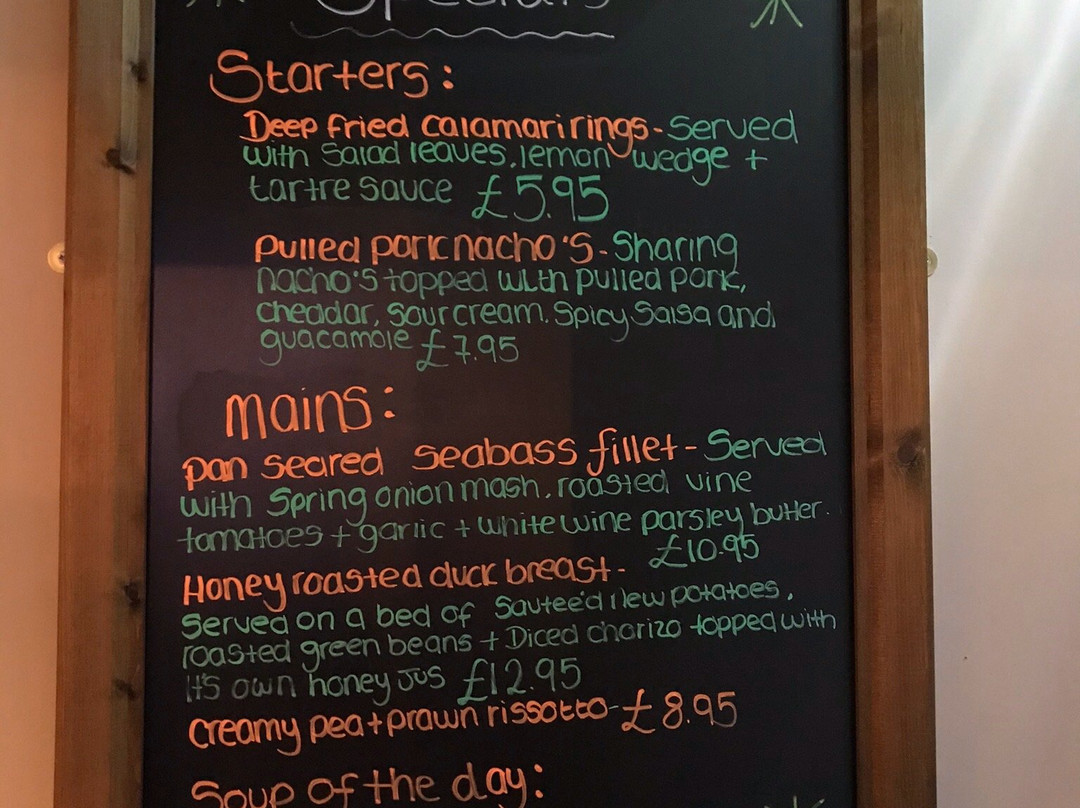 Specials
Starters:
Deep fried calamari rings - Served
with Salad leaves, lemon wedge +
tartre sauce £5.95
Pulled pork nacho's - Sharing
nacho's topped with pulled pork,
cheddar, sour cream. Spicy Salsa and
guacamole £7.95
mains:
pan seared seabass fillet - Served
with Spring onion mash, roasted vine
tomatoes + garlic + white wine parsley butter.
£10.95
Honey roasted duck breast -
Served on a bed of Sautee'd new potatoes,
roasted green beans + Diced chorizo topped with
it's own honey jus £12.95
creamy pea + prawn rissotto - £8.95
Soup of the day: